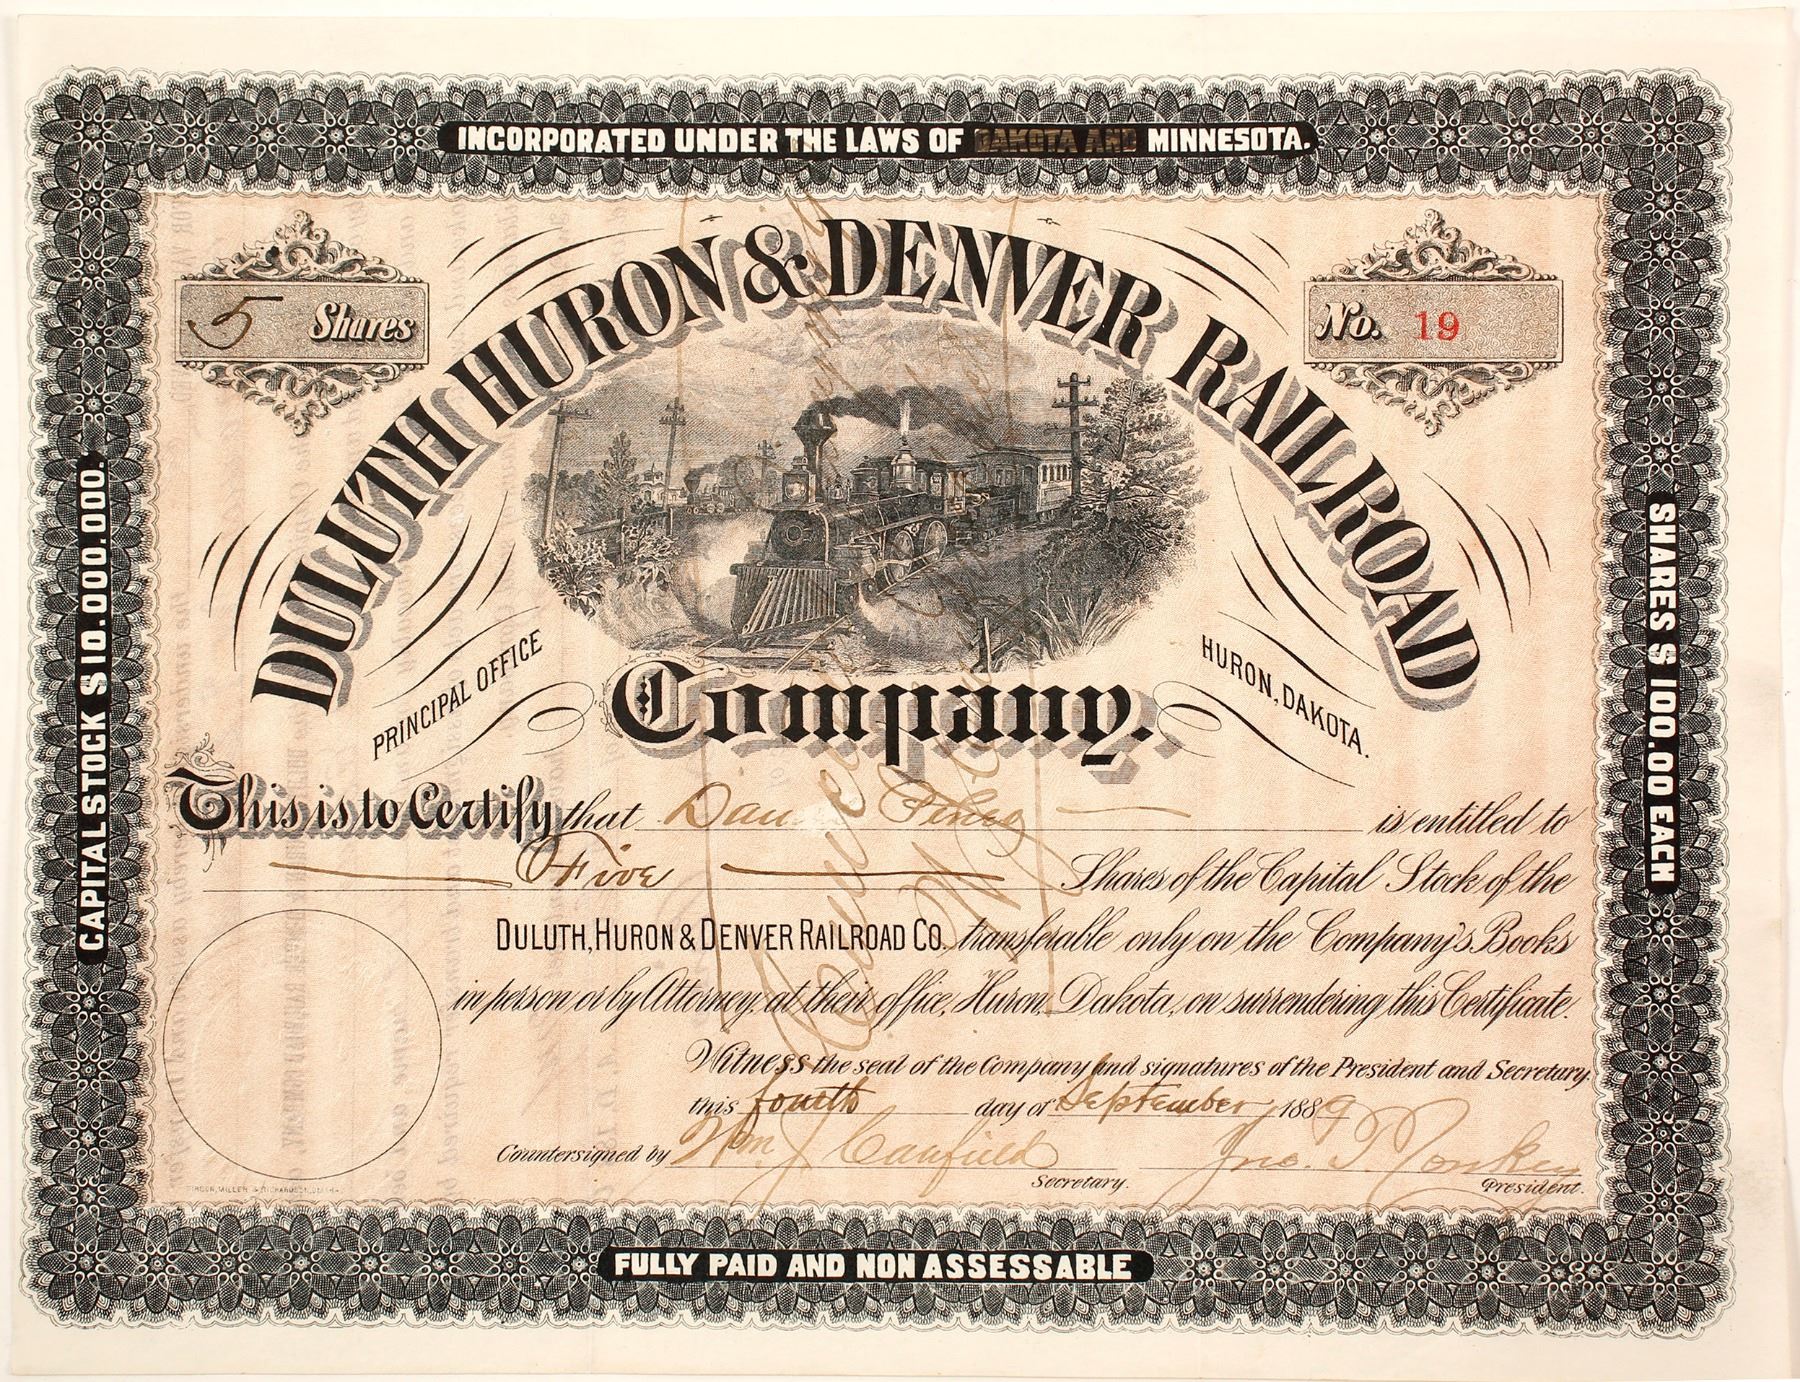 INCORPORATED UNDER THE LAWS OF DAKOTA AND MINNESOTA.
5 Shares
No. 19
DULUTH HURON & DENVER RAILROAD
Company.
PRINCIPAL OFFICE
HURON, DAKOTA.
CAPITAL STOCK $10.000.000.
SHARES $100.00 EACH
This is to Certify that is entitled to
Five Shares of the Capital Stock of the
DULUTH, HURON & DENVER RAILROAD CO. transferable only on the Company's Books
in person or by Attorney, at their office, Huron, Dakota, on surrendering this Certificate.
Witness the seal of the Company and signatures of the President and Secretary.
this fourth day of September 1889
Countersigned by Wm. J. Canfield Jno. T.
Secretary. President.
FULLY PAID AND NON ASSESSABLE